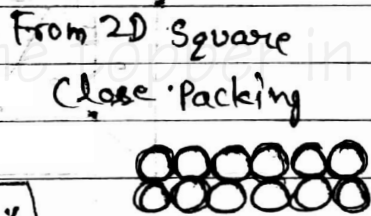 From 2D Square
Close Packing